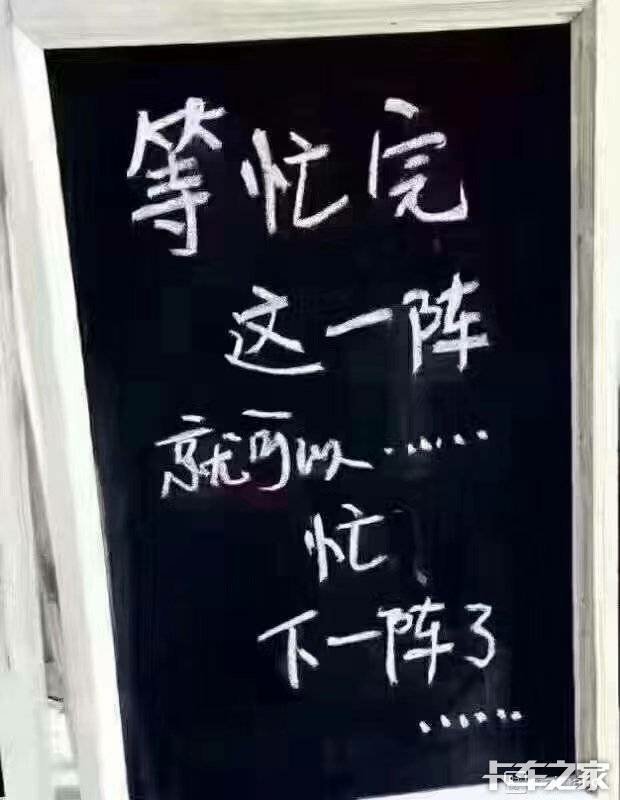 等忙完
这一阵
就可以……
忙
下一阵了
……
卡车之家